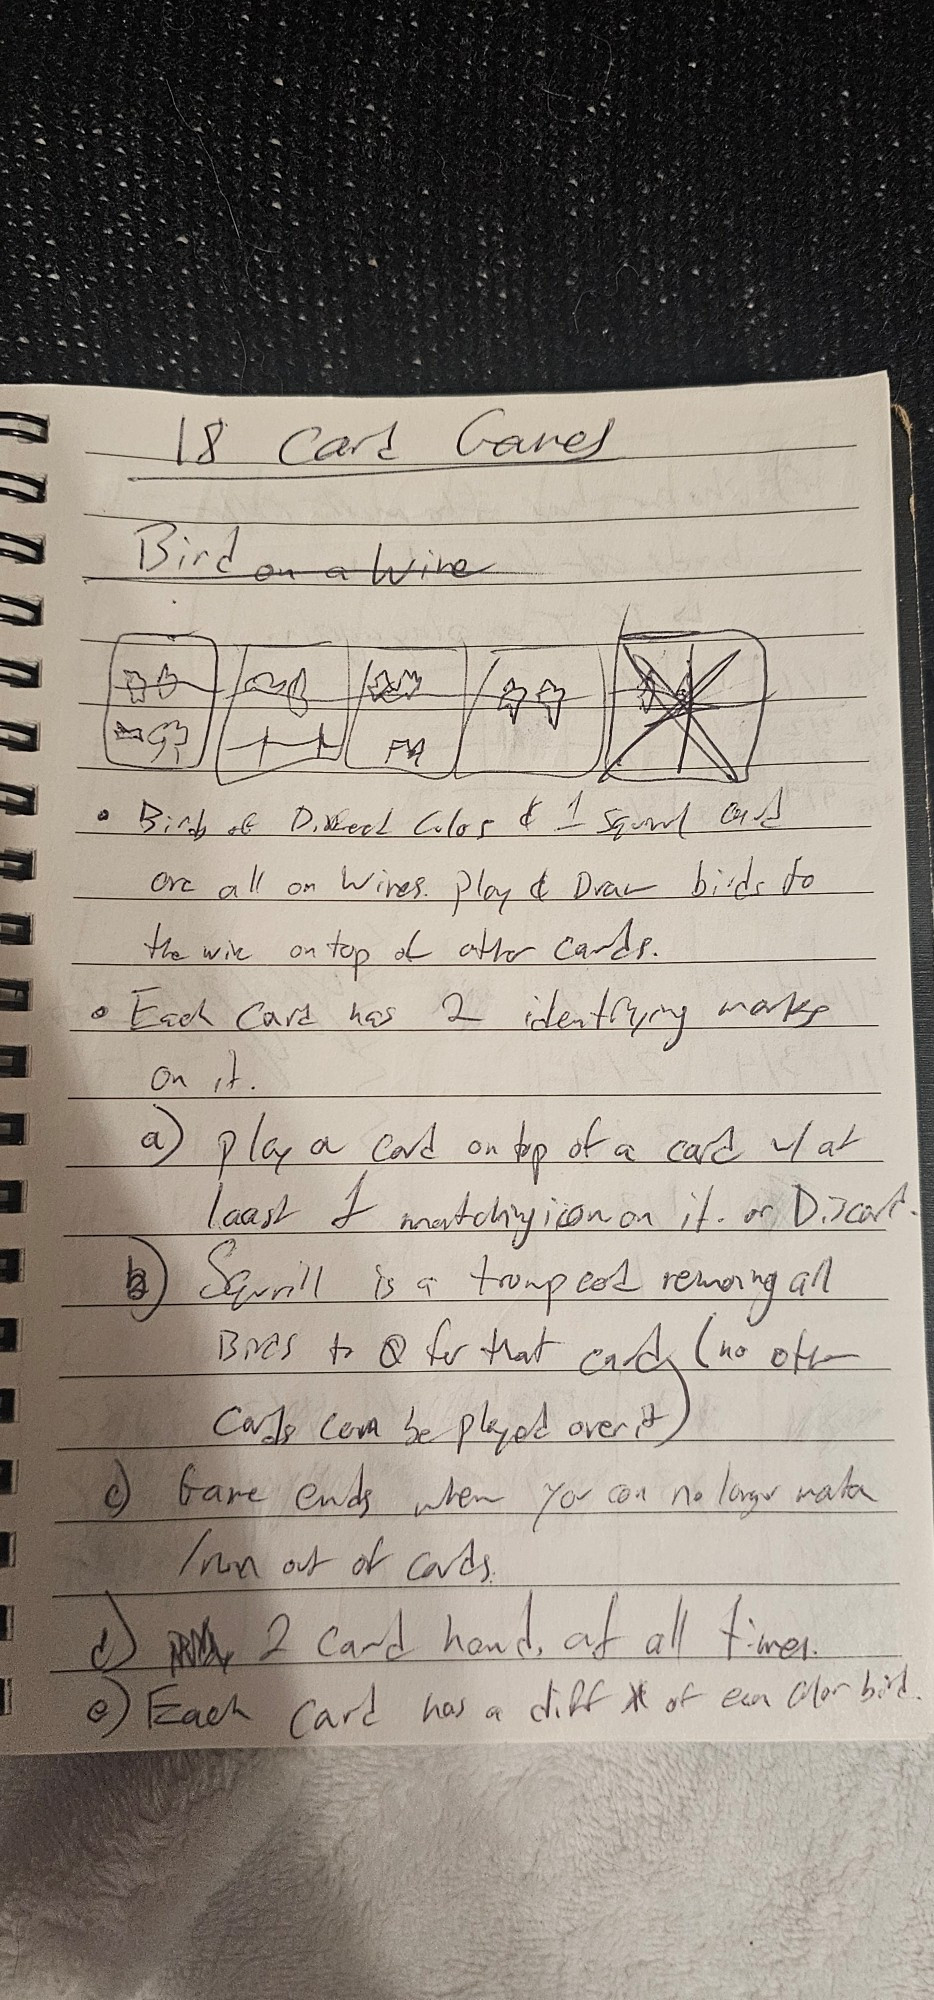 18 Card Games
Bird on a Wire
• Birds of Different Color & 1 Squirrel card
are all on wires. Play & Draw birds to
the wire on top of other cards.
• Each Card has 2 identifying marks
on it.
a) play a card on top of a card w/ at
least 1 matching icon on it. or Discard.
b) Squrill is a trump card removing all
Birds to 0 for that card (no other
Cards can be played over it)
c) Game ends when you can no longer match
/run out of cards.
d) 2 card hand, at all times.
e) Each Card has a diff # of each color bird.